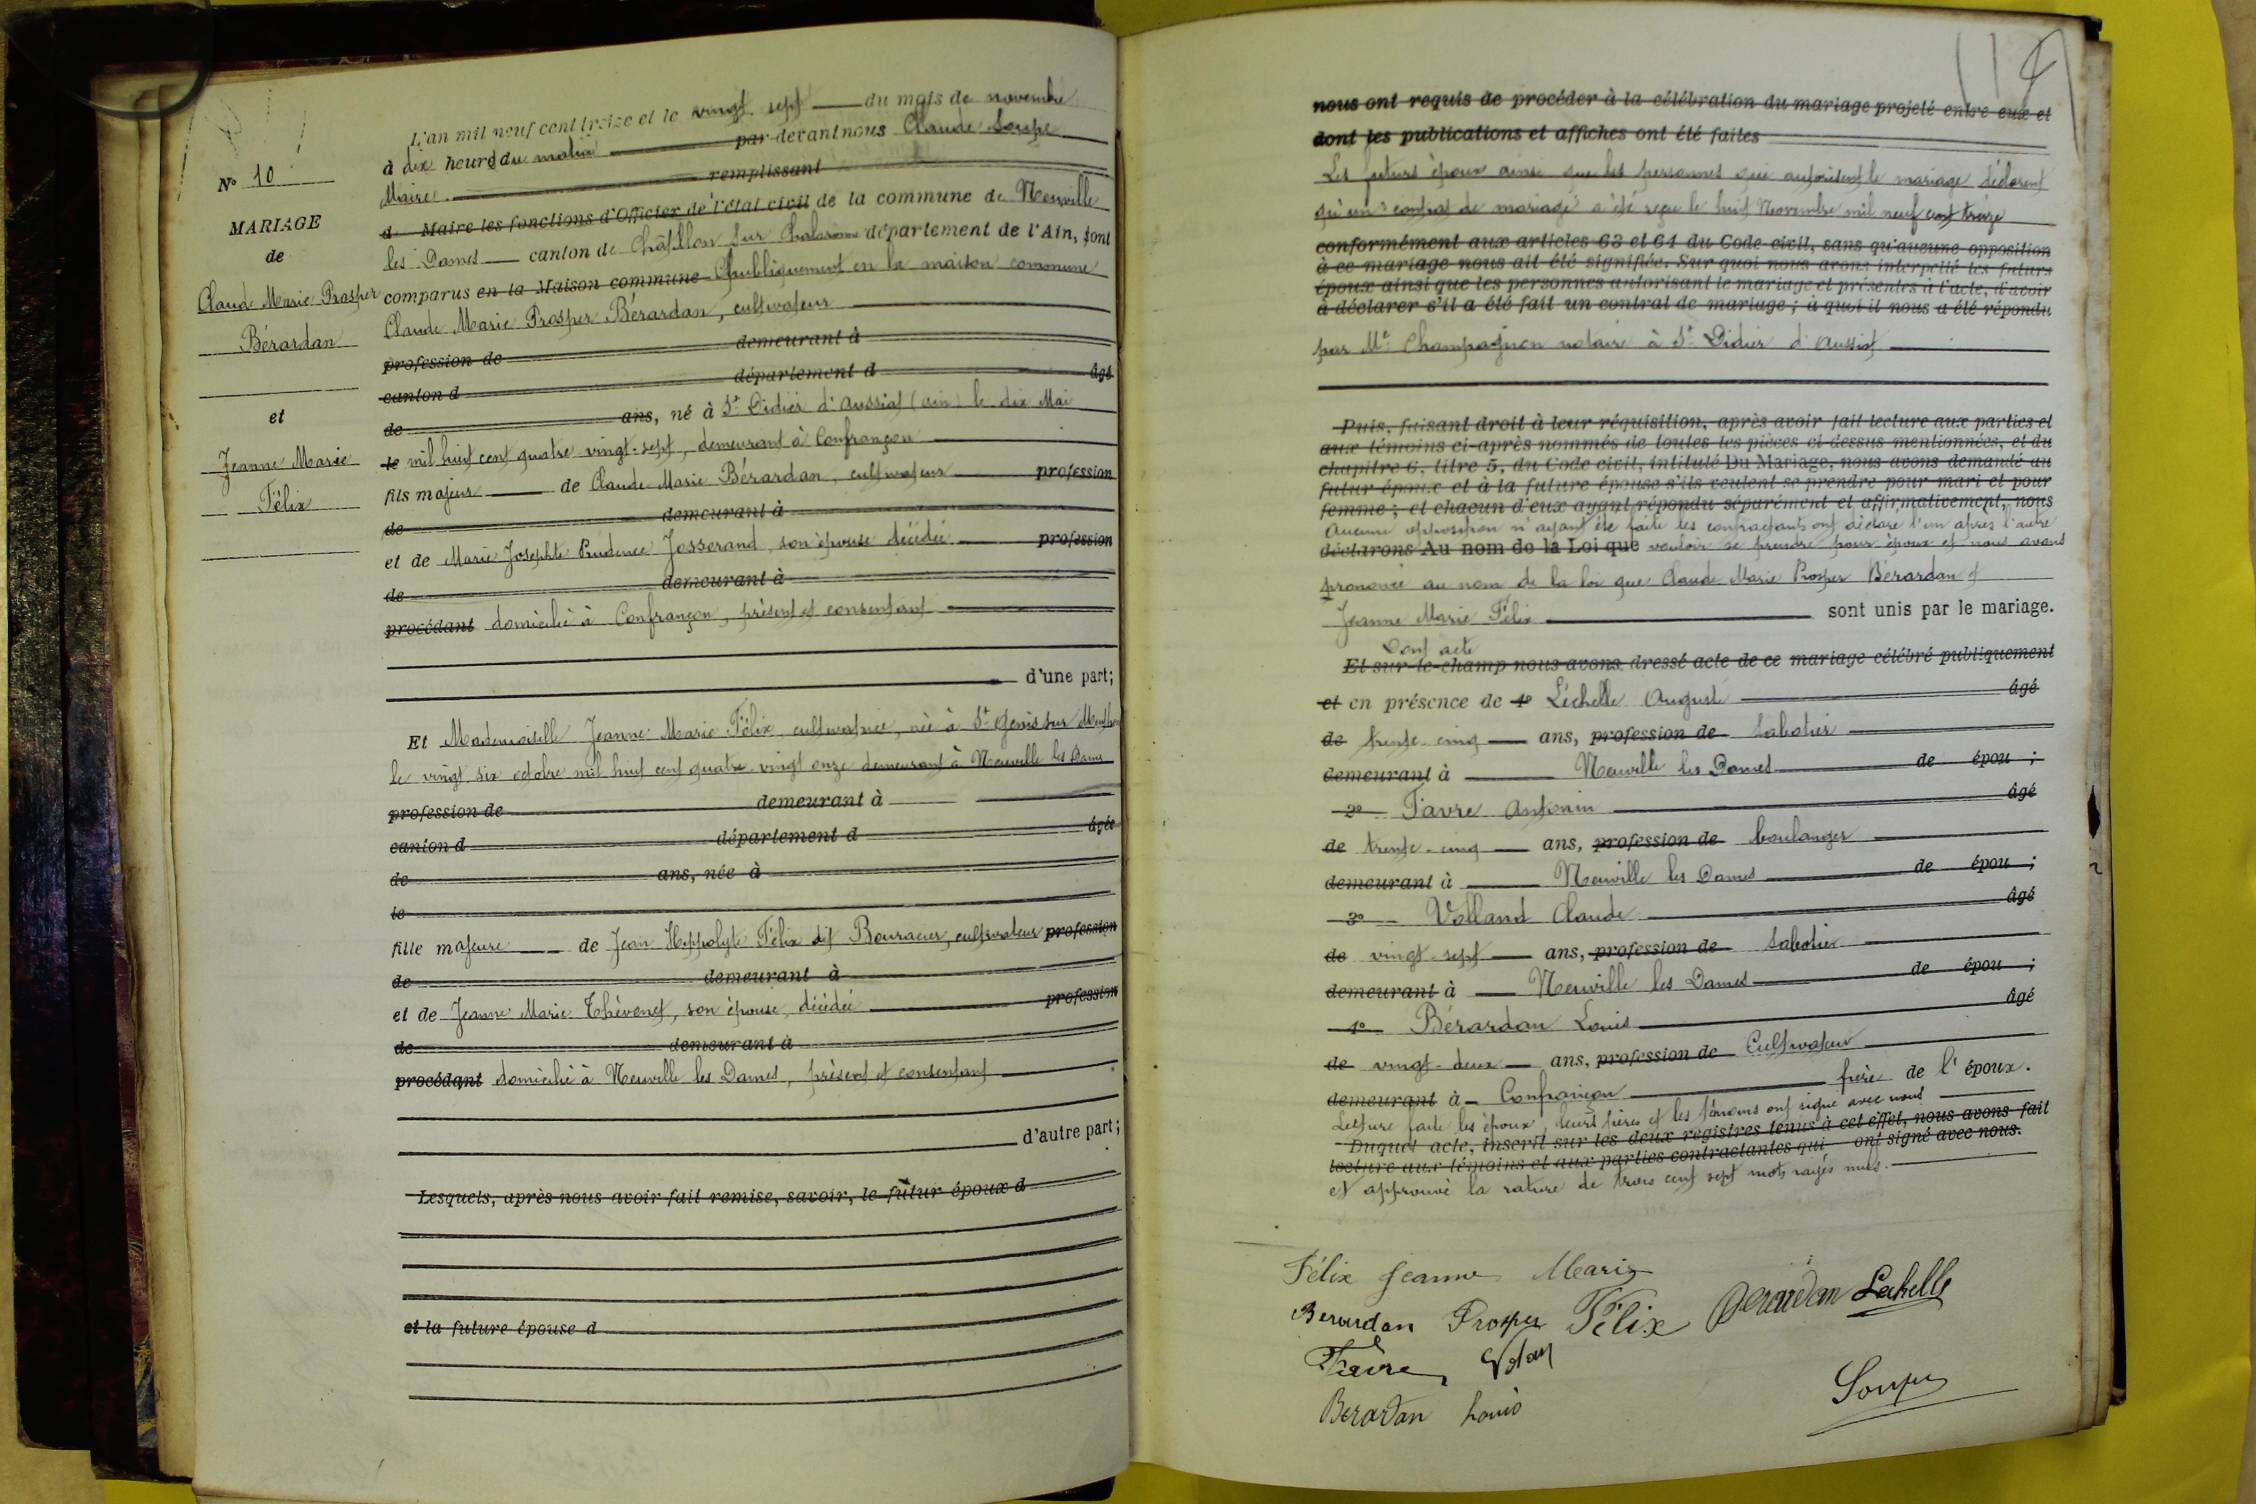 L'an mil neuf cent treize et le vingt sept du mois de novembre
à dix heures du matin par devant nous Claude Soupe
Maire. remplissant
d Maire les fonctions d'Officier de l'état civil de la commune de Neuville
les Dames canton de Châtillon sur Chalaronne département de l'Ain, sont
comparus en la Maison commune Publiquement en la maison commune
Claude Marie Prosper Bérardan, cultivateur
profession de demeurant à
canton d département d âgé
de ans, né à St Didier d'Aussiat (ain) le dix Mai
le mil huit cent quatre vingt-sept, demeurant à Confrançon
fils majeur de Claude Marie Bérardan, cultivateur profession
de demeurant à
et de Marie Josephte Prudence Josserand, son épouse décédée profession
de demeurant à
procédant domicilié à Confrançon, présent et consentant
d'une part;
Et Mademoiselle Jeanne Marie Félix, cultivatrice, née à St Genis sur Menthon
le vingt six octobre mil huit cent quatre-vingt onze demeurant à Neuville les Dames
profession de demeurant à
canton d département d âgée
de ans, née à
le
fille majeure de Jean Hippolyte Félix dit Bouracier, cultivateur profession
de demeurant à
et de Jeanne Marie Thévenet, son épouse, décédée profession
de demeurant à
procédant domicilié à Neuville les Dames, présent et consentant
d'autre part;
Lesquels, après nous avoir fait remise, savoir, le futur époux d
et la future épouse d
N° 10
MARIAGE
de
Claude Marie Prosper
Bérardan
et
Jeanne Marie
Félix
nous ont requis de procéder à la célébration du mariage projeté entre eux et
dont les publications et affiches ont été faites
Les futurs époux ainsi que les personnes qui autorisent le mariage déclarent
qu'un contrat de mariage a été reçu le huit Novembre mil neuf cent treize
conformément aux articles 63 et 64 du Code civil, sans qu'aucune opposition
à ce mariage nous ait été signifiée. Sur quoi nous avons interpellé les futurs
époux ainsi que les personnes autorisant le mariage et présentes à l'acte, d'avoir
à déclarer s'il a été fait un contrat de mariage; à quoi il nous a été répondu
par Me Champagnon notaire à St Didier d'Aussiat
Puis, faisant droit à leur réquisition, après avoir fait lecture aux parties et
aux témoins ci-après nommés de toutes les pièces ci-dessus mentionnées, et du
chapitre 6, titre 5, du Code civil, intitulé Du Mariage, nous avons demandé au
futur époux et à la future épouse s'ils veulent se prendre pour mari et pour
femme; et chacun d'eux ayant répondu séparément et affirmativement, nous
Aucune opposition n'ayant été faite les contractants ont déclaré l'un après l'autre
déclarons Au nom de la Loi que vouloir se prendre pour époux et nous avons
prononcé au nom de la loi que Claude Marie Prosper Bérardan et
Jeanne Marie Félix sont unis par le mariage.
Dont acte
Et sur-le-champ nous avons dressé acte de ce mariage célébré publiquement
et en présence de 1° Léchelle Auguste âgé
de trente-cinq ans, profession de sabotier
demeurant à Neuville les Dames de épou ;
2° Favre Antonin âgé
de trente-cinq ans, profession de boulanger
demeurant à Neuville les Dames de épou ;
3° Volland Claude âgé
de vingt-sept ans, profession de sabotier
demeurant à Neuville les Dames de épou ;
4° Bérardan Louis âgé
de vingt-deux ans, profession de Cultivateur
demeurant à Confrançon frère de l'époux.
Lecture faite les époux, leurs pères et les témoins ont signé avec nous
Duquel acte, inscrit sur les deux registres tenus à cet effet, nous avons fait
lecture aux témoins et aux parties contractantes qui ont signé avec nous.
et approuvé la rature de trois cent sept mots rayés nuls.
Félix Jeanne Marie
Berardan Prosper Félix Berardan Lechelle
Favre Volan
Berardan Louis Soupe